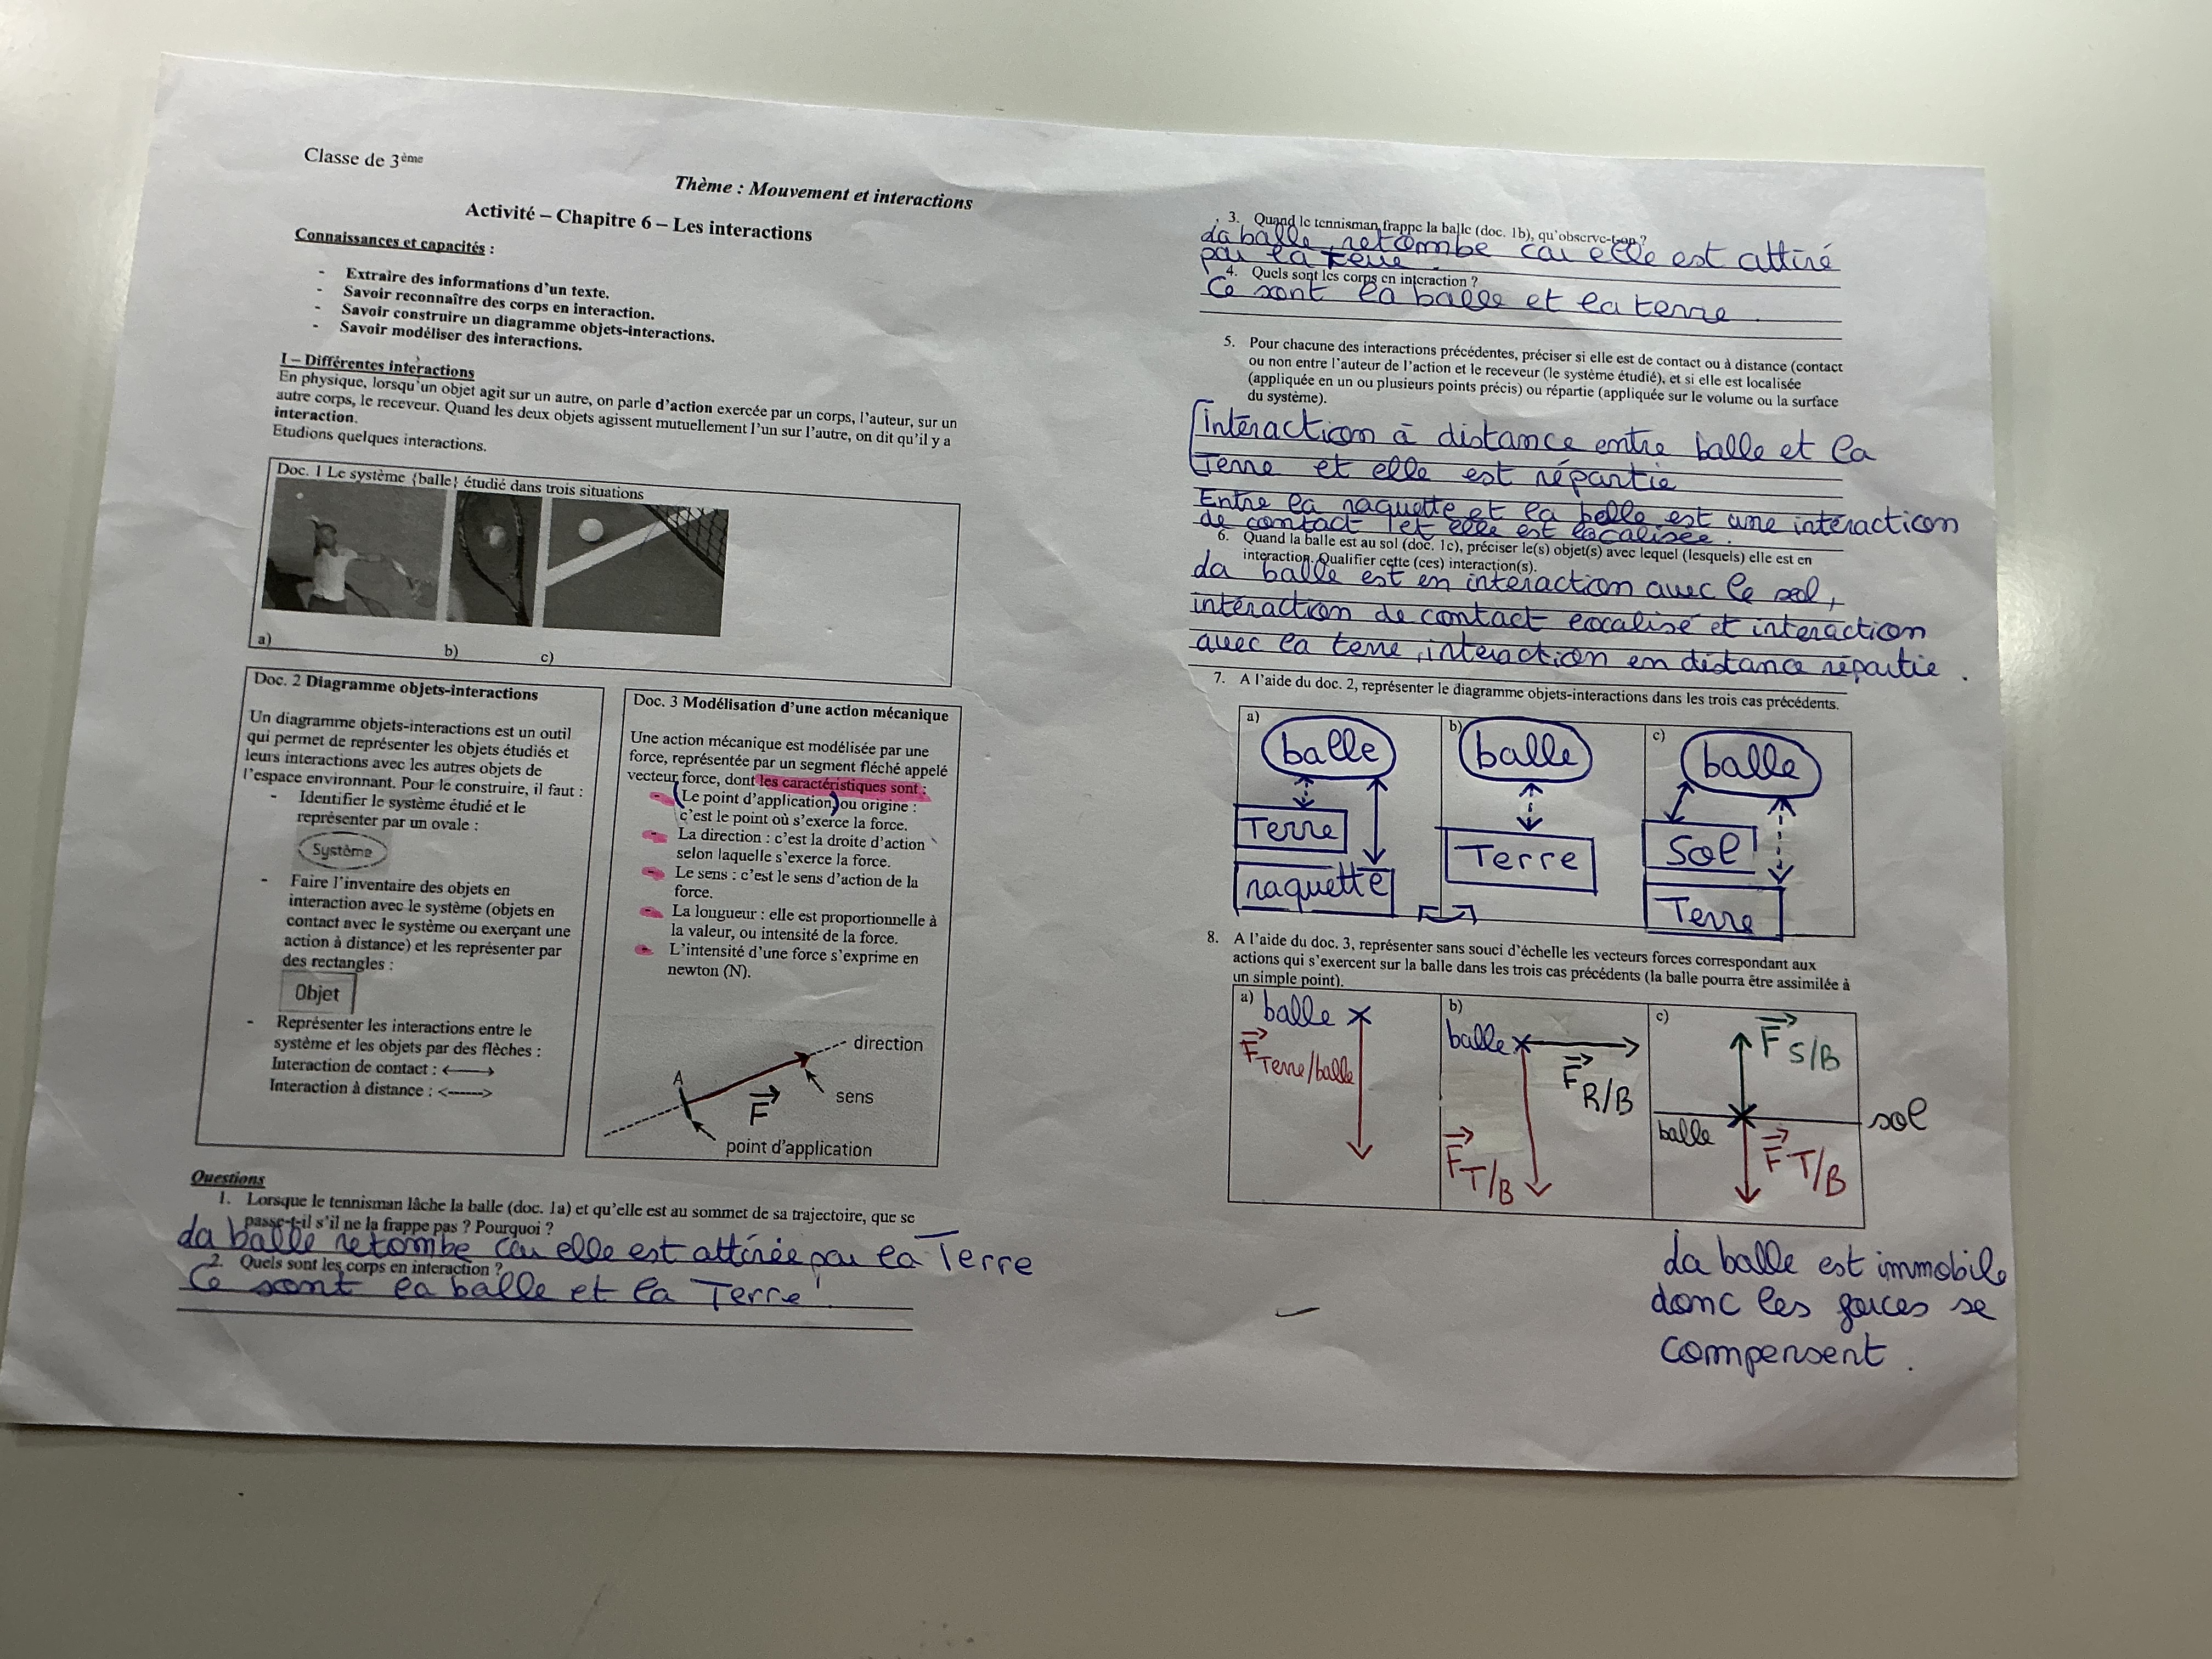 Classe de 3ème
Thème : Mouvement et interactions
Activité – Chapitre 6 – Les interactions
Connaissances et capacités :
- Extraire des informations d'un texte.
- Savoir reconnaître des corps en interaction.
- Savoir construire un diagramme objets-interactions.
- Savoir modéliser des interactions.
I – Différentes interactions
En physique, lorsqu'un objet agit sur un autre, on parle d'action exercée par un corps, l'auteur, sur un
autre corps, le receveur. Quand les deux objets agissent mutuellement l'un sur l'autre, on dit qu'il y a
interaction.
Etudions quelques interactions.
Doc. 1 Le système {balle} étudié dans trois situations
a)
b)
c)
Doc. 2 Diagramme objets-interactions
Un diagramme objets-interactions est un outil
qui permet de représenter les objets étudiés et
leurs interactions avec les autres objets de
l'espace environnant. Pour le construire, il faut :
- Identifier le système étudié et le
représenter par un ovale :
Système
- Faire l'inventaire des objets en
interaction avec le système (objets en
contact avec le système ou exerçant une
action à distance) et les représenter par
des rectangles :
Objet
- Représenter les interactions entre le
système et les objets par des flèches :
Interaction de contact : <——>
Interaction à distance : <------>
Doc. 3 Modélisation d'une action mécanique
Une action mécanique est modélisée par une
force, représentée par un segment fléché appelé
vecteur force, dont les caractéristiques sont :
- (Le point d'application) ou origine :
c'est le point où s'exerce la force.
- La direction : c'est la droite d'action
selon laquelle s'exerce la force.
- Le sens : c'est le sens d'action de la
force.
- La longueur : elle est proportionnelle à
la valeur, ou intensité de la force.
- L'intensité d'une force s'exprime en
newton (N).
direction
A
sens
F
point d'application
Questions
1. Lorsque le tennisman lâche la balle (doc. 1a) et qu'elle est au sommet de sa trajectoire, que se
passe-t-il s'il ne la frappe pas ? Pourquoi ?
La balle retombe car elle est attirée par la Terre
2. Quels sont les corps en interaction ?
Ce sont la balle et la Terre
3. Quand le tennisman frappe la balle (doc. 1b), qu'observe-t-on ?
La balle retombe car elle est attiré
par la terre.
4. Quels sont les corps en interaction ?
Ce sont la balle et la terre.
5. Pour chacune des interactions précédentes, préciser si elle est de contact ou à distance (contact
ou non entre l'auteur de l'action et le receveur (le système étudié), et si elle est localisée
(appliquée en un ou plusieurs points précis) ou répartie (appliquée sur le volume ou la surface
du système).
Interaction à distance entre balle et la
Terre et elle est répartie
Entre la raquette et la balle est une interaction
de contact et elle est localisée.
6. Quand la balle est au sol (doc. 1c), préciser le(s) objet(s) avec lequel (lesquels) elle est en
interaction. Qualifier cette (ces) interaction(s).
La balle est en interaction avec le sol,
interaction de contact localisé et interaction
avec la terre, interaction en distance répartie.
7. A l'aide du doc. 2, représenter le diagramme objets-interactions dans les trois cas précédents.
a)
balle
Terre
raquette
b)
balle
Terre
c)
balle
Sol
Terre
8. A l'aide du doc. 3, représenter sans souci d'échelle les vecteurs forces correspondant aux
actions qui s'exercent sur la balle dans les trois cas précédents (la balle pourra être assimilée à
un simple point).
a) balle
F Terre/balle
b)
balle
F R/B
F T/B
c)
F S/B
balle
sol
F T/B
La balle est immobile
donc les forces se
compensent.